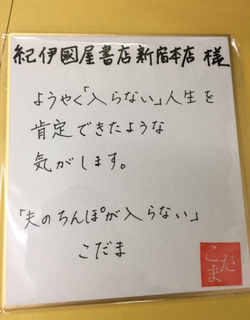 紀伊國屋書店新宿本店 様
ようやく「入らない」人生を
肯定できたような
気がします。
「夫のちんぽが入らない」
こだま
こだま